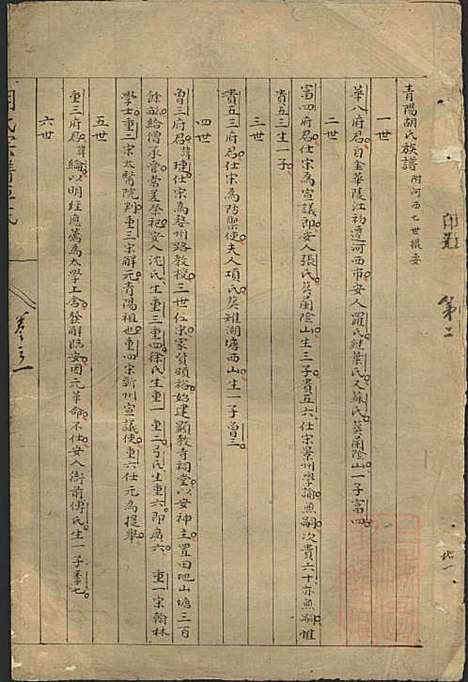 青陽胡氏族譜附河西七世撮要
一世
華八府君自金華陵江初遷河西市安人羅氏繼葉氏又蘇氏葬蘭陰山一子富四
二世
富四府君仕宋為宣議郎安人張氏葬蘭陰山生三子貴五六仕宋景州學諭無嗣次貴六十亦無嗣惟
貴五三生一子
三世
貴五三府君仕宋為防禦使夫人項氏葬雉湖塘西山生一子曾三
四世
曾三府君諱璉仕宋為婺州路教授三世仁宗家貲頗裕始建顯教寺祠堂以安神主置田地山塘三百
餘畝給僧承管常差祭祀安人沈氏生重三重四徐氏生重一重二弓氏生重六即廣六 重一宗翰林
學士重二宗太醫院判重三宗解元青陽祖也重四宗新州宣議使重六仕元為提舉
五世
重三府君諱綸以明經應薦為太學上舍發解臨安因元革命不仕安人衙前傅氏生一子季七
六世
卷之一
第二